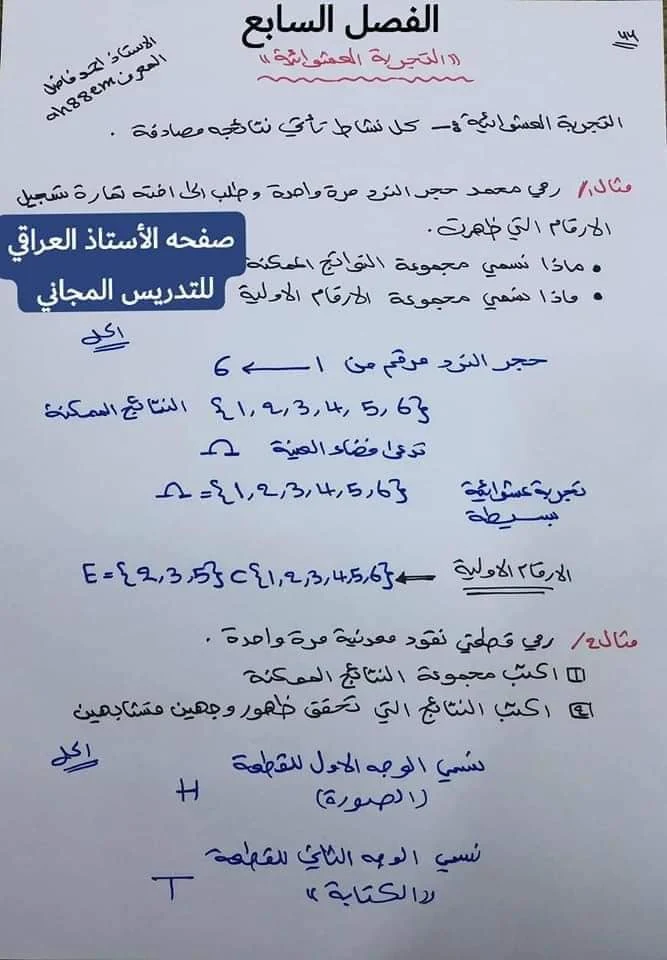 الفصل السابع
٧٦
الاستاذ احمد فاضل
المعرف ah88em
«التجربة العشوائية»
التجربة العشوائية :- كل نشاط تأتي نتائجه مصادفة .
مثال1/ رمي محمد حجر النرد مرة واحدة وطلب الى اخته تمارة تسجيل
الارقام التي ظهرت .
صفحه الأستاذ العراقي
للتدريس المجاني
• ماذا نسمي مجموعة النواتج الممكنة
• ماذا نسمي مجموعة الارقام الاولية
الحل
حجر النرد مرقم من 1 ⟶ 6
{1, 2, 3, 4, 5, 6} النتائج الممكنة
تدعى فضاء العينة Ω
تجربة عشوائية Ω = {1, 2, 3, 4, 5, 6}
بسيطة
الارقام الاولية ← E = {2, 3, 5} ⊂ {1, 2, 3, 4, 5, 6}
مثال2/ رمي قطعتي نقود معدنية مرة واحدة .
1 اكتب مجموعة النتائج الممكنة
2 اكتب النتائج التي تحقق ظهور وجهين متشابهين
الحل
نسمي الوجه الاول للقطعة
(الصورة) H
نسمي الوجه الثاني للقطعة
«الكتابة» T